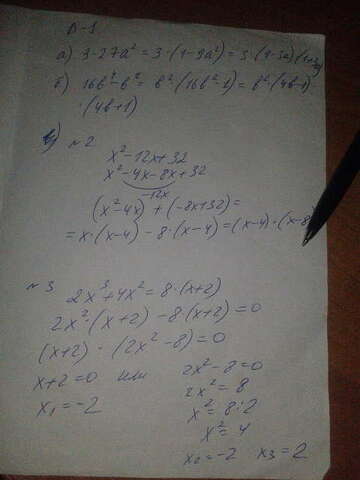 В-1
а) 3-27a² = 3·(1-9a²) = 3·(1-3a)(1+3a)
б) 16b⁴-b² = b²·(16b²-1) = b²·(4b-1)
·(4b+1)
в) №2
x²-12x+32
x²-4x-8x+32
-12x
(x²-4x) + (-8x+32) =
= x·(x-4) - 8·(x-4) = (x-4)·(x-8)
№3
2x³+4x² = 8·(x+2)
2x²·(x+2) - 8·(x+2) = 0
(x+2) · (2x²-8) = 0
x+2=0 или 2x²-8=0
x₁=-2 2x²=8
x²=8:2
x²=4
x₂=-2 x₃=2